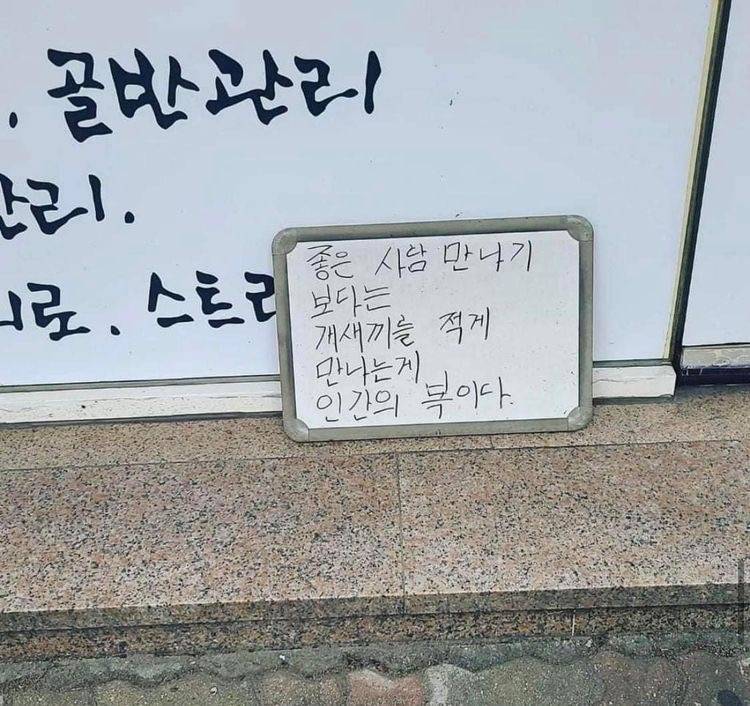 . 골반관리
관리.
피로. 스트레
좋은 사람 만나기
보다는
개새끼를 적게
만나는게
인간의 복이다.